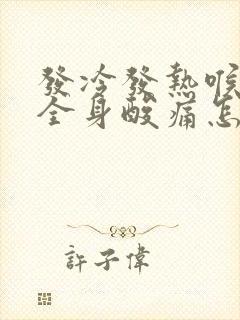 發冷發熱喉
全身酸痛怎
許子偉